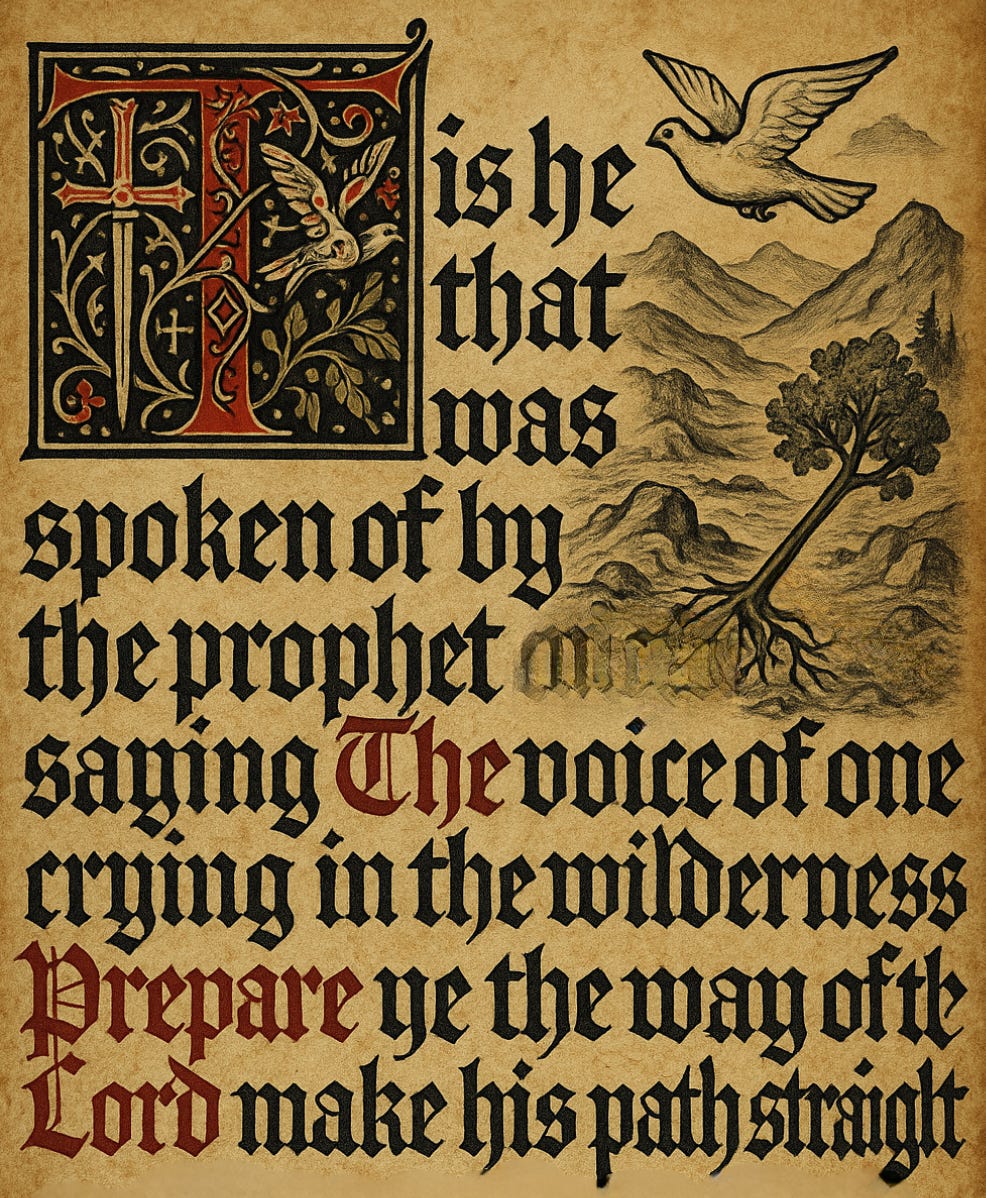 T is he
that
was
spoken of by
the prophet
saying The voice of one
crying in the wilderness
Prepare ye the way of the
Lord make his path straight